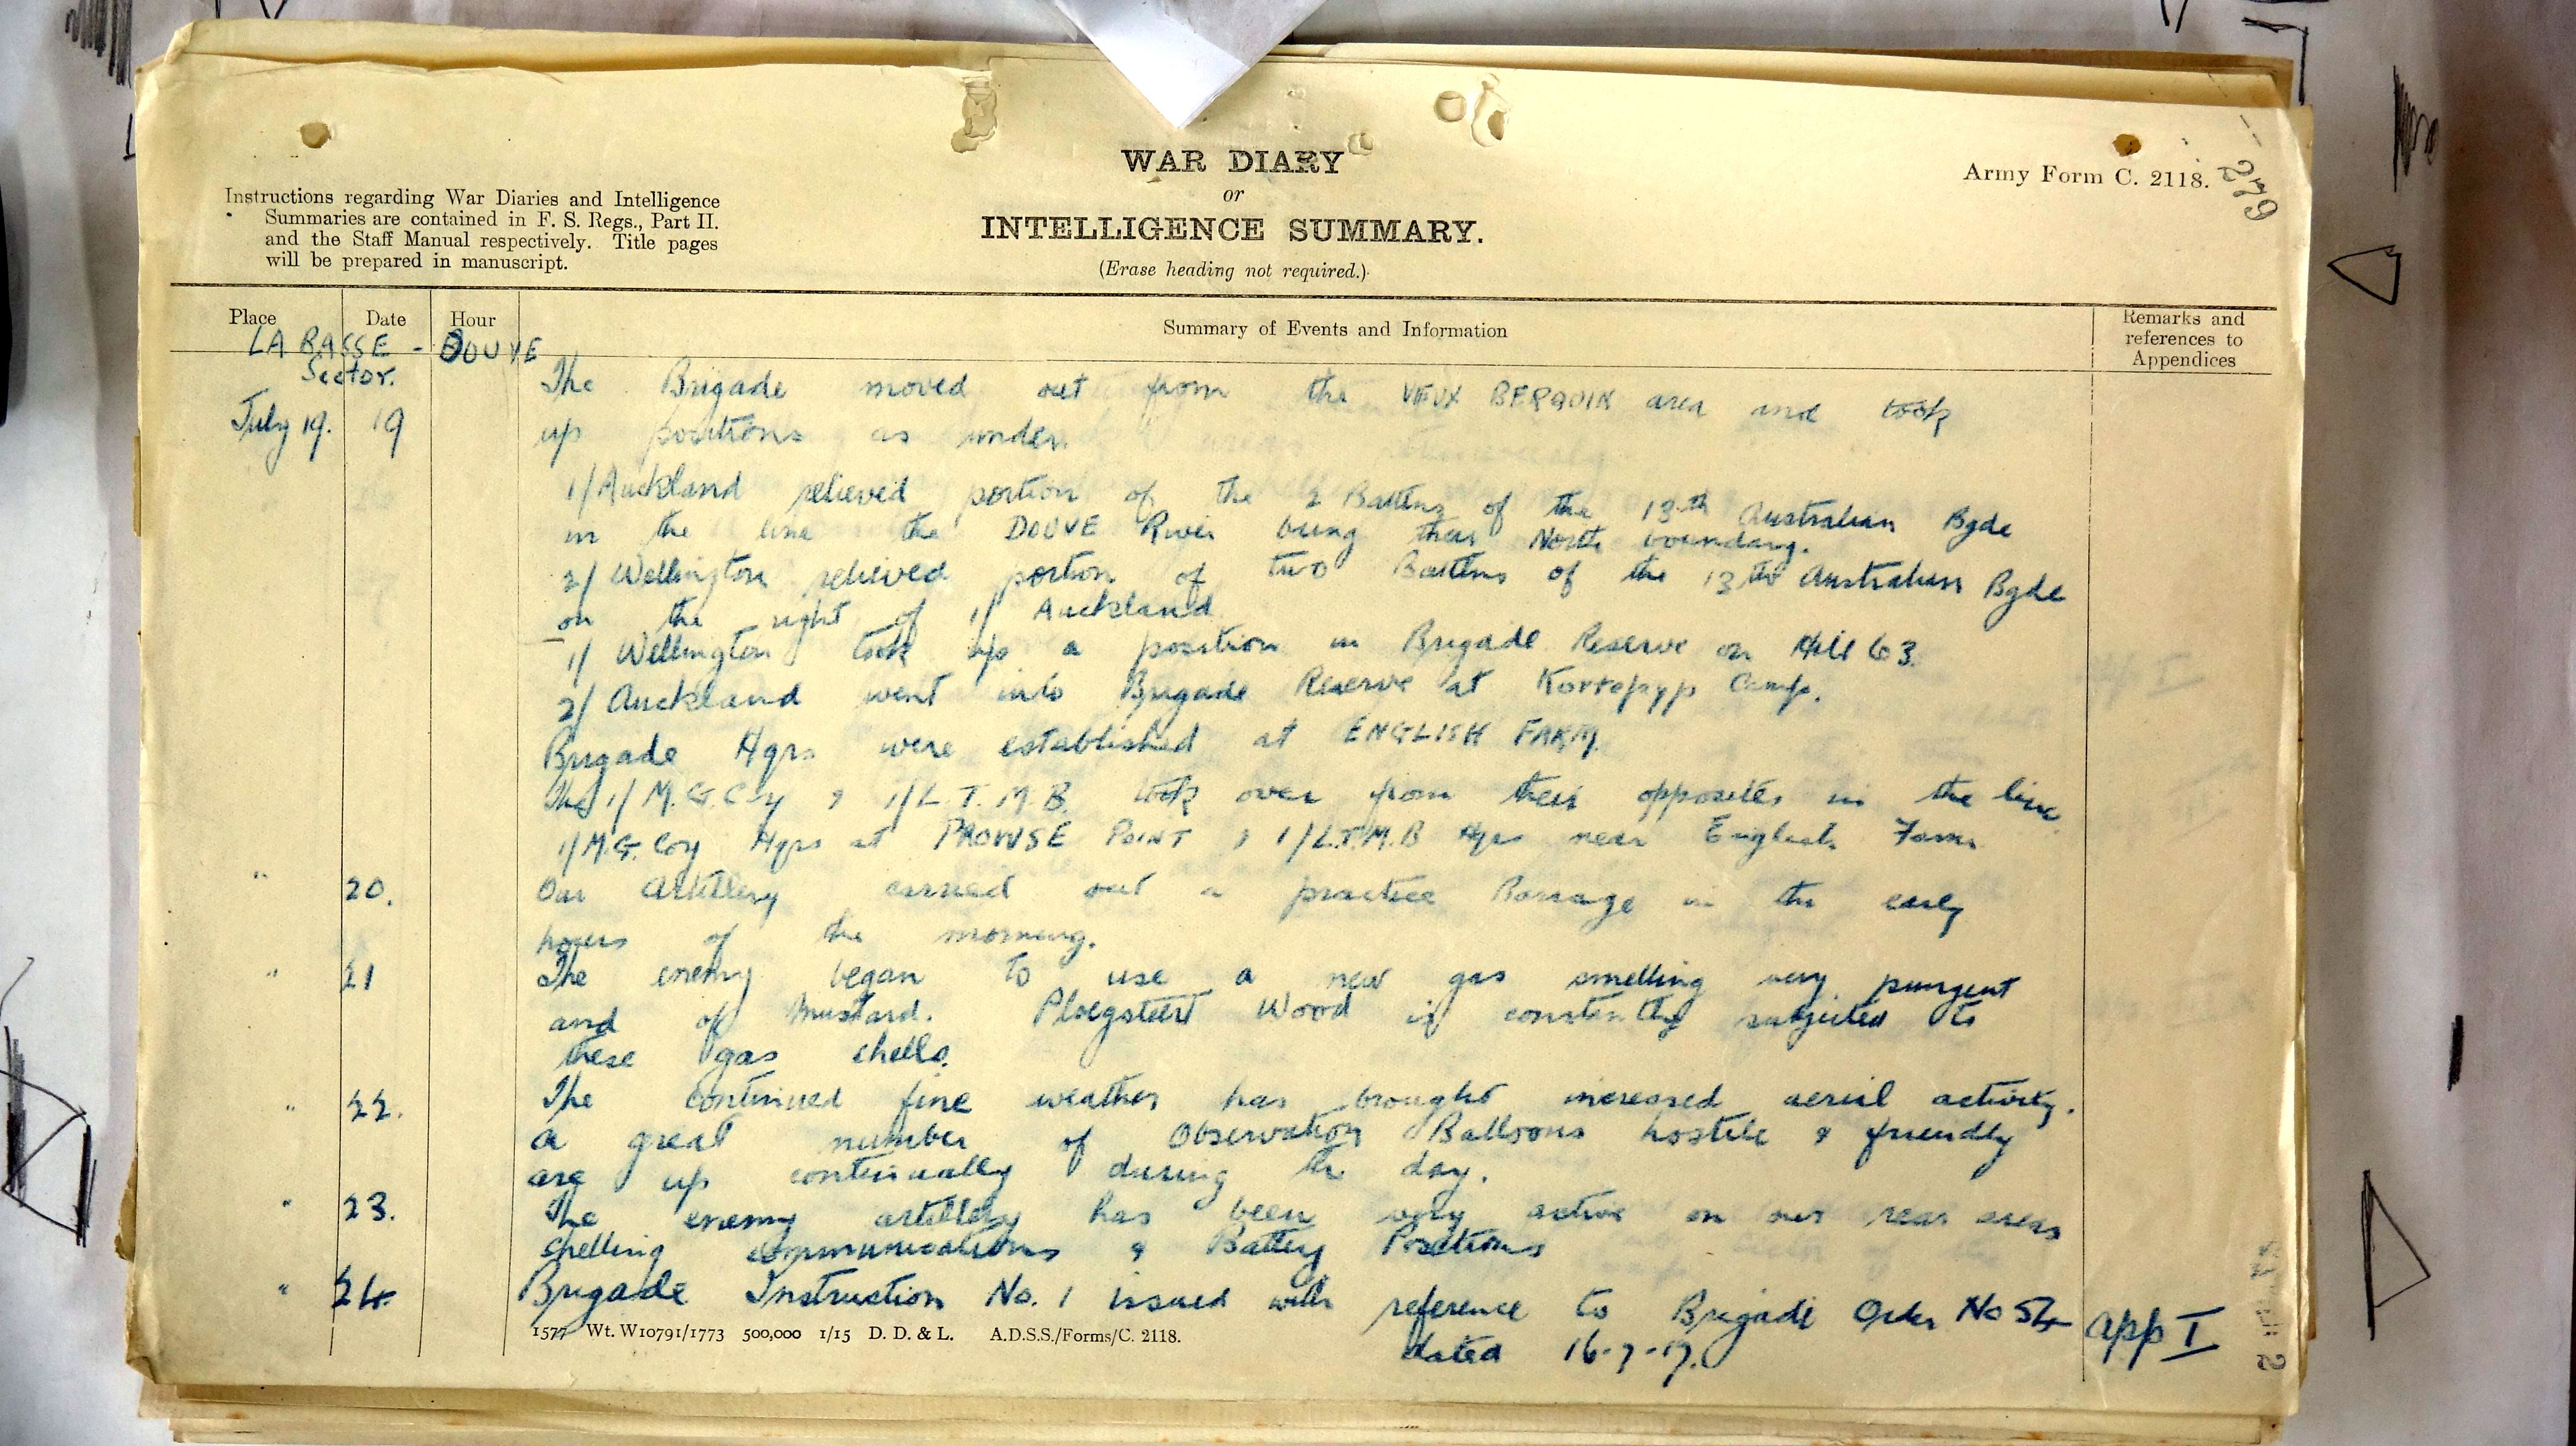 WAR DIARY
or
INTELLIGENCE SUMMARY.
(Erase heading not required.)
Army Form C. 2118.
279
Instructions regarding War Diaries and Intelligence
Summaries are contained in F. S. Regs., Part II.
and the Staff Manual respectively. Title pages
will be prepared in manuscript.
Place Date Hour Summary of Events and Information Remarks and references to Appendices
LA BASSE - DOUVE
Sector.
July 19. 19 The Brigade moved out from the VIEUX BERQUIN area and took
up positions as under
1/Auckland relieved portion of the 2 Battns of the 13th Australian Bgde
in the line the DOUVE River being their North boundary.
2/ Wellington relieved portion of two Battns of the 13th Australian Bgde
on the right of 1/ Auckland
1/ Wellington took up a position in Brigade Reserve on Hill 63.
2/ Auckland went into Brigade Reserve at Kortepyp Camp.
Brigade Hqrs were established at ENGLISH FARM.
The 1/ M.G. Coy & 1/L.T.M.B. took over from their opposites in the line
1/M.G. Coy Hqrs at PROWSE POINT & 1/L.T.M.B Hqrs near English Farm
" 20. Our artillery carried out a practice Barrage in the early
hours of the morning.
" 21 The enemy began to use a new gas smelling very pungent
and of Mustard. Ploegsteert Wood is constantly subjected to
these gas shells.
" 22. The continued fine weather has brought increased aerial activity.
a great number of Observation Balloons hostile & friendly
are up continually during the day.
" 23. The enemy artillery has been very active on our rear areas
shelling communications & Battery Positions
" 24. Brigade Instruction No. 1 issued with reference to Brigade Order No 54 App I
dated 16-7-17.
1577 Wt. W10791/1773 500,000 1/15 D. D. & L. A.D.S.S./Forms/C. 2118.